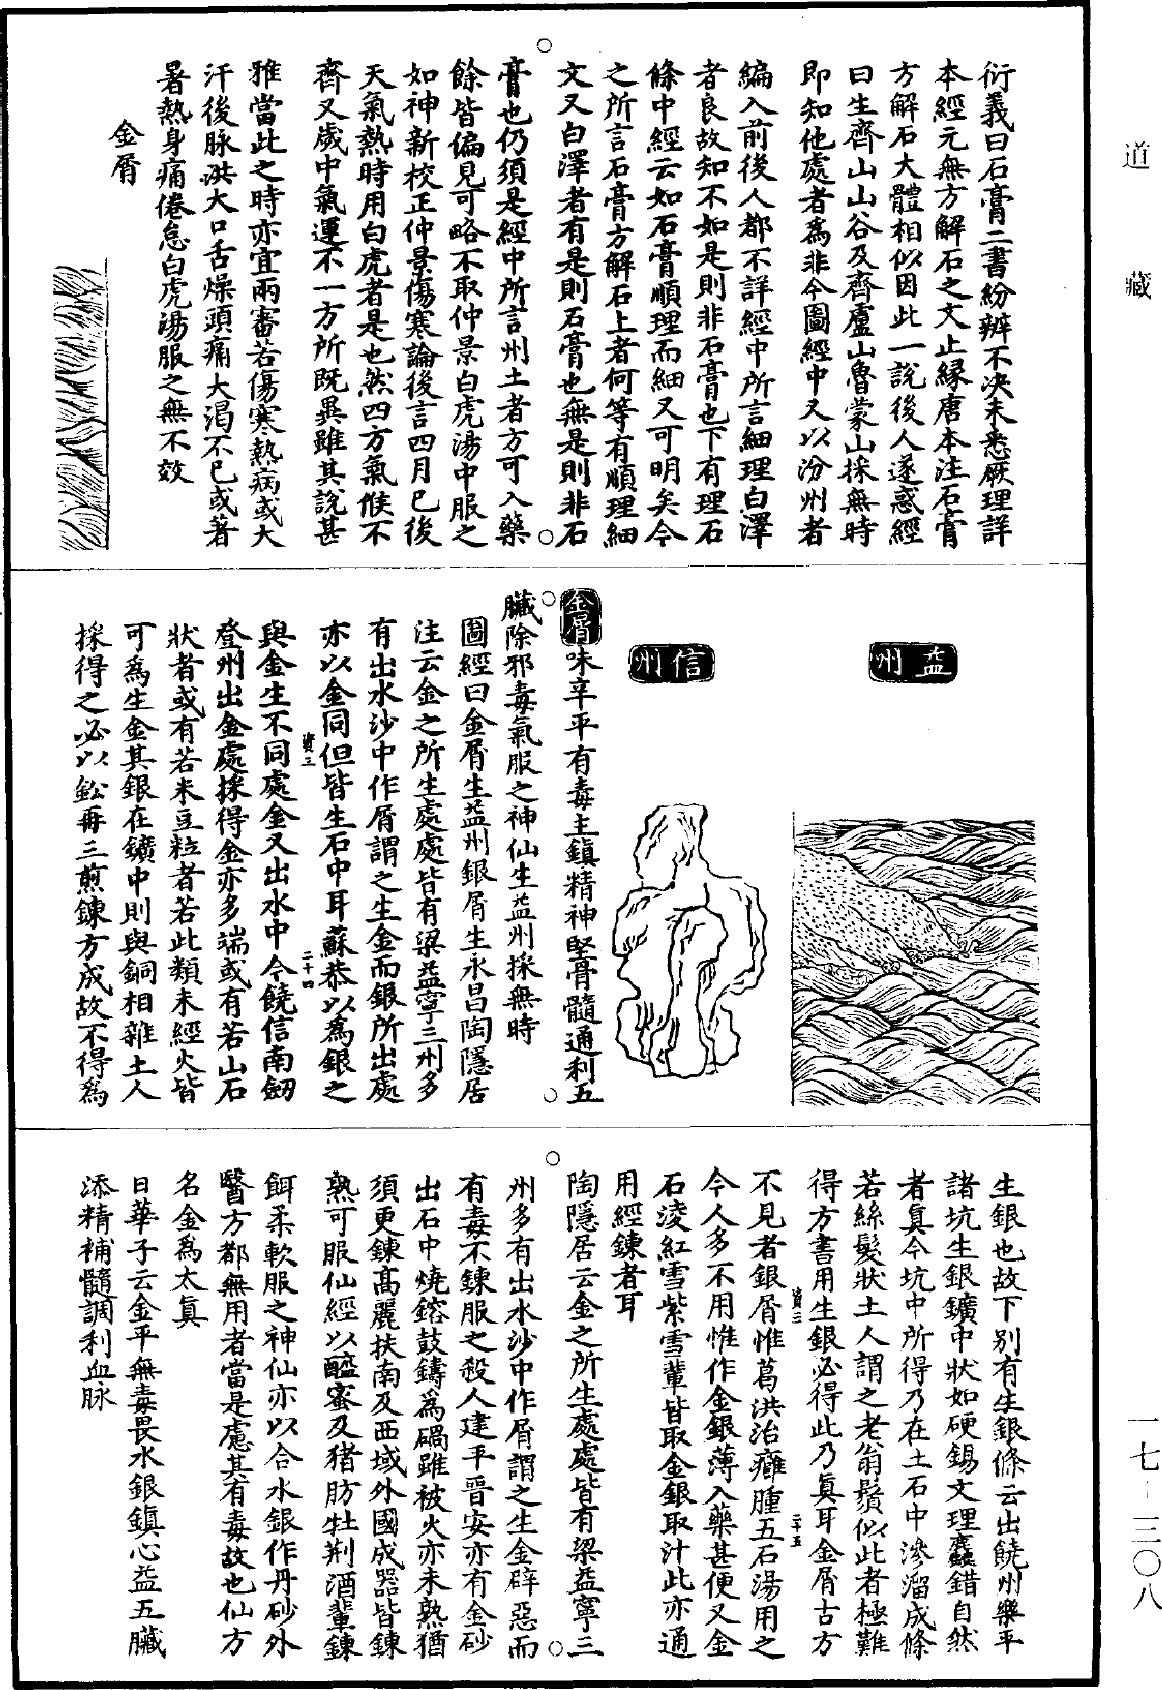 道藏
衍義曰石膏二書紛辨不決未悉厥理詳
本經元無方解石之文止緣唐本注石膏
方解石大體相似因此一說後人遂惑經
曰生齊山山谷及齊盧山魯蒙山採無時
即知他處者為非今圖經中又以汾州者
編入前後人都不詳經中所言細理白澤
者良故知不如是則非石膏也下有理石
條中經云如石膏順理而細又可明矣今
之所言石膏方解石上者何等有順理細
文又白澤者有是則石膏也無是則非石
膏也仍須是經中所言州土者方可入藥
餘皆偏見可略不取仲景白虎湯中服之
如神新校正仲景傷寒論後言四月已後
天氣熱時用白虎者是也然四方氣候不
齊又歲中氣運不一方所既異雖其說甚
雅當此之時亦宜兩審若傷寒熱病或大
汗後脉洪大口舌燥頭痛大渴不已或著
暑熱身痛倦怠白虎湯服之無不效
金屑
益州
信州
金屑味辛平有毒主鎮精神堅膏髓通利五
臟除邪毒氣服之神仙生益州採無時
圖經曰金屑生益州銀屑生永昌陶隱居
注云金之所生處處皆有梁益寧三州多
有出水沙中作屑謂之生金而銀所出處
亦以金同但皆生石中耳蘇恭以為銀之
資三
二十四
與金生不同處金又出水中今饒信南劒
登州出金處採得金亦多端或有若山石
狀者或有若米豆粒者若此類未經火皆
可為生金其銀在鑛中則與銅相雜土人
採得之必以鉛再三煎鍊方成故不得為
生銀也故下別有生銀條云出饒州樂平
諸坑生銀鑛中狀如硬錫文理麤錯自然
者真今坑中所得乃在土石中滲溜成條
若絲髮狀土人謂之老翁鬚似此者極難
得方書用生銀必得此乃真耳金屑古方
資三
二十五
不見者銀屑惟葛洪治癰腫五石湯用之
今人多不用惟作金銀薄入藥甚便又金
石淩紅雪紫雪輩皆取金銀取汁此亦通
用經鍊者耳
陶隱居云金之所生處處皆有梁益寧三
州多有出水沙中作屑謂之生金辟惡而
有毒不鍊服之殺人建平晉安亦有金砂
出石中燒鎔鼓鑄為碢雖被火亦未熟猶
須更鍊高麗扶南及西域外國成器皆鍊
熟可服仙經以醯蜜及猪肪牡荆酒輩鍊
餌柔軟服之神仙亦以合水銀作丹砂外
醫方都無用者當是慮其有毒故也仙方
名金為太真
日華子云金平無毒畏水銀鎮心益五臟
添精補髓調利血脉
一七-三〇八